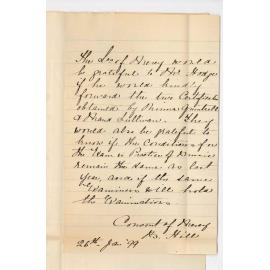 The Srs of Mercy would
be grateful to Mr Hodge
if he would kindly
forward the two Certificates
obtained by
& Maud Sullivan. They
would also be grateful to
know if the Conditions for
the Exam in Practice of
remain the same as last
year, and if the same
Examiners will hold
the Examinations
Convent of Mercy
Hill
26th Jan '99